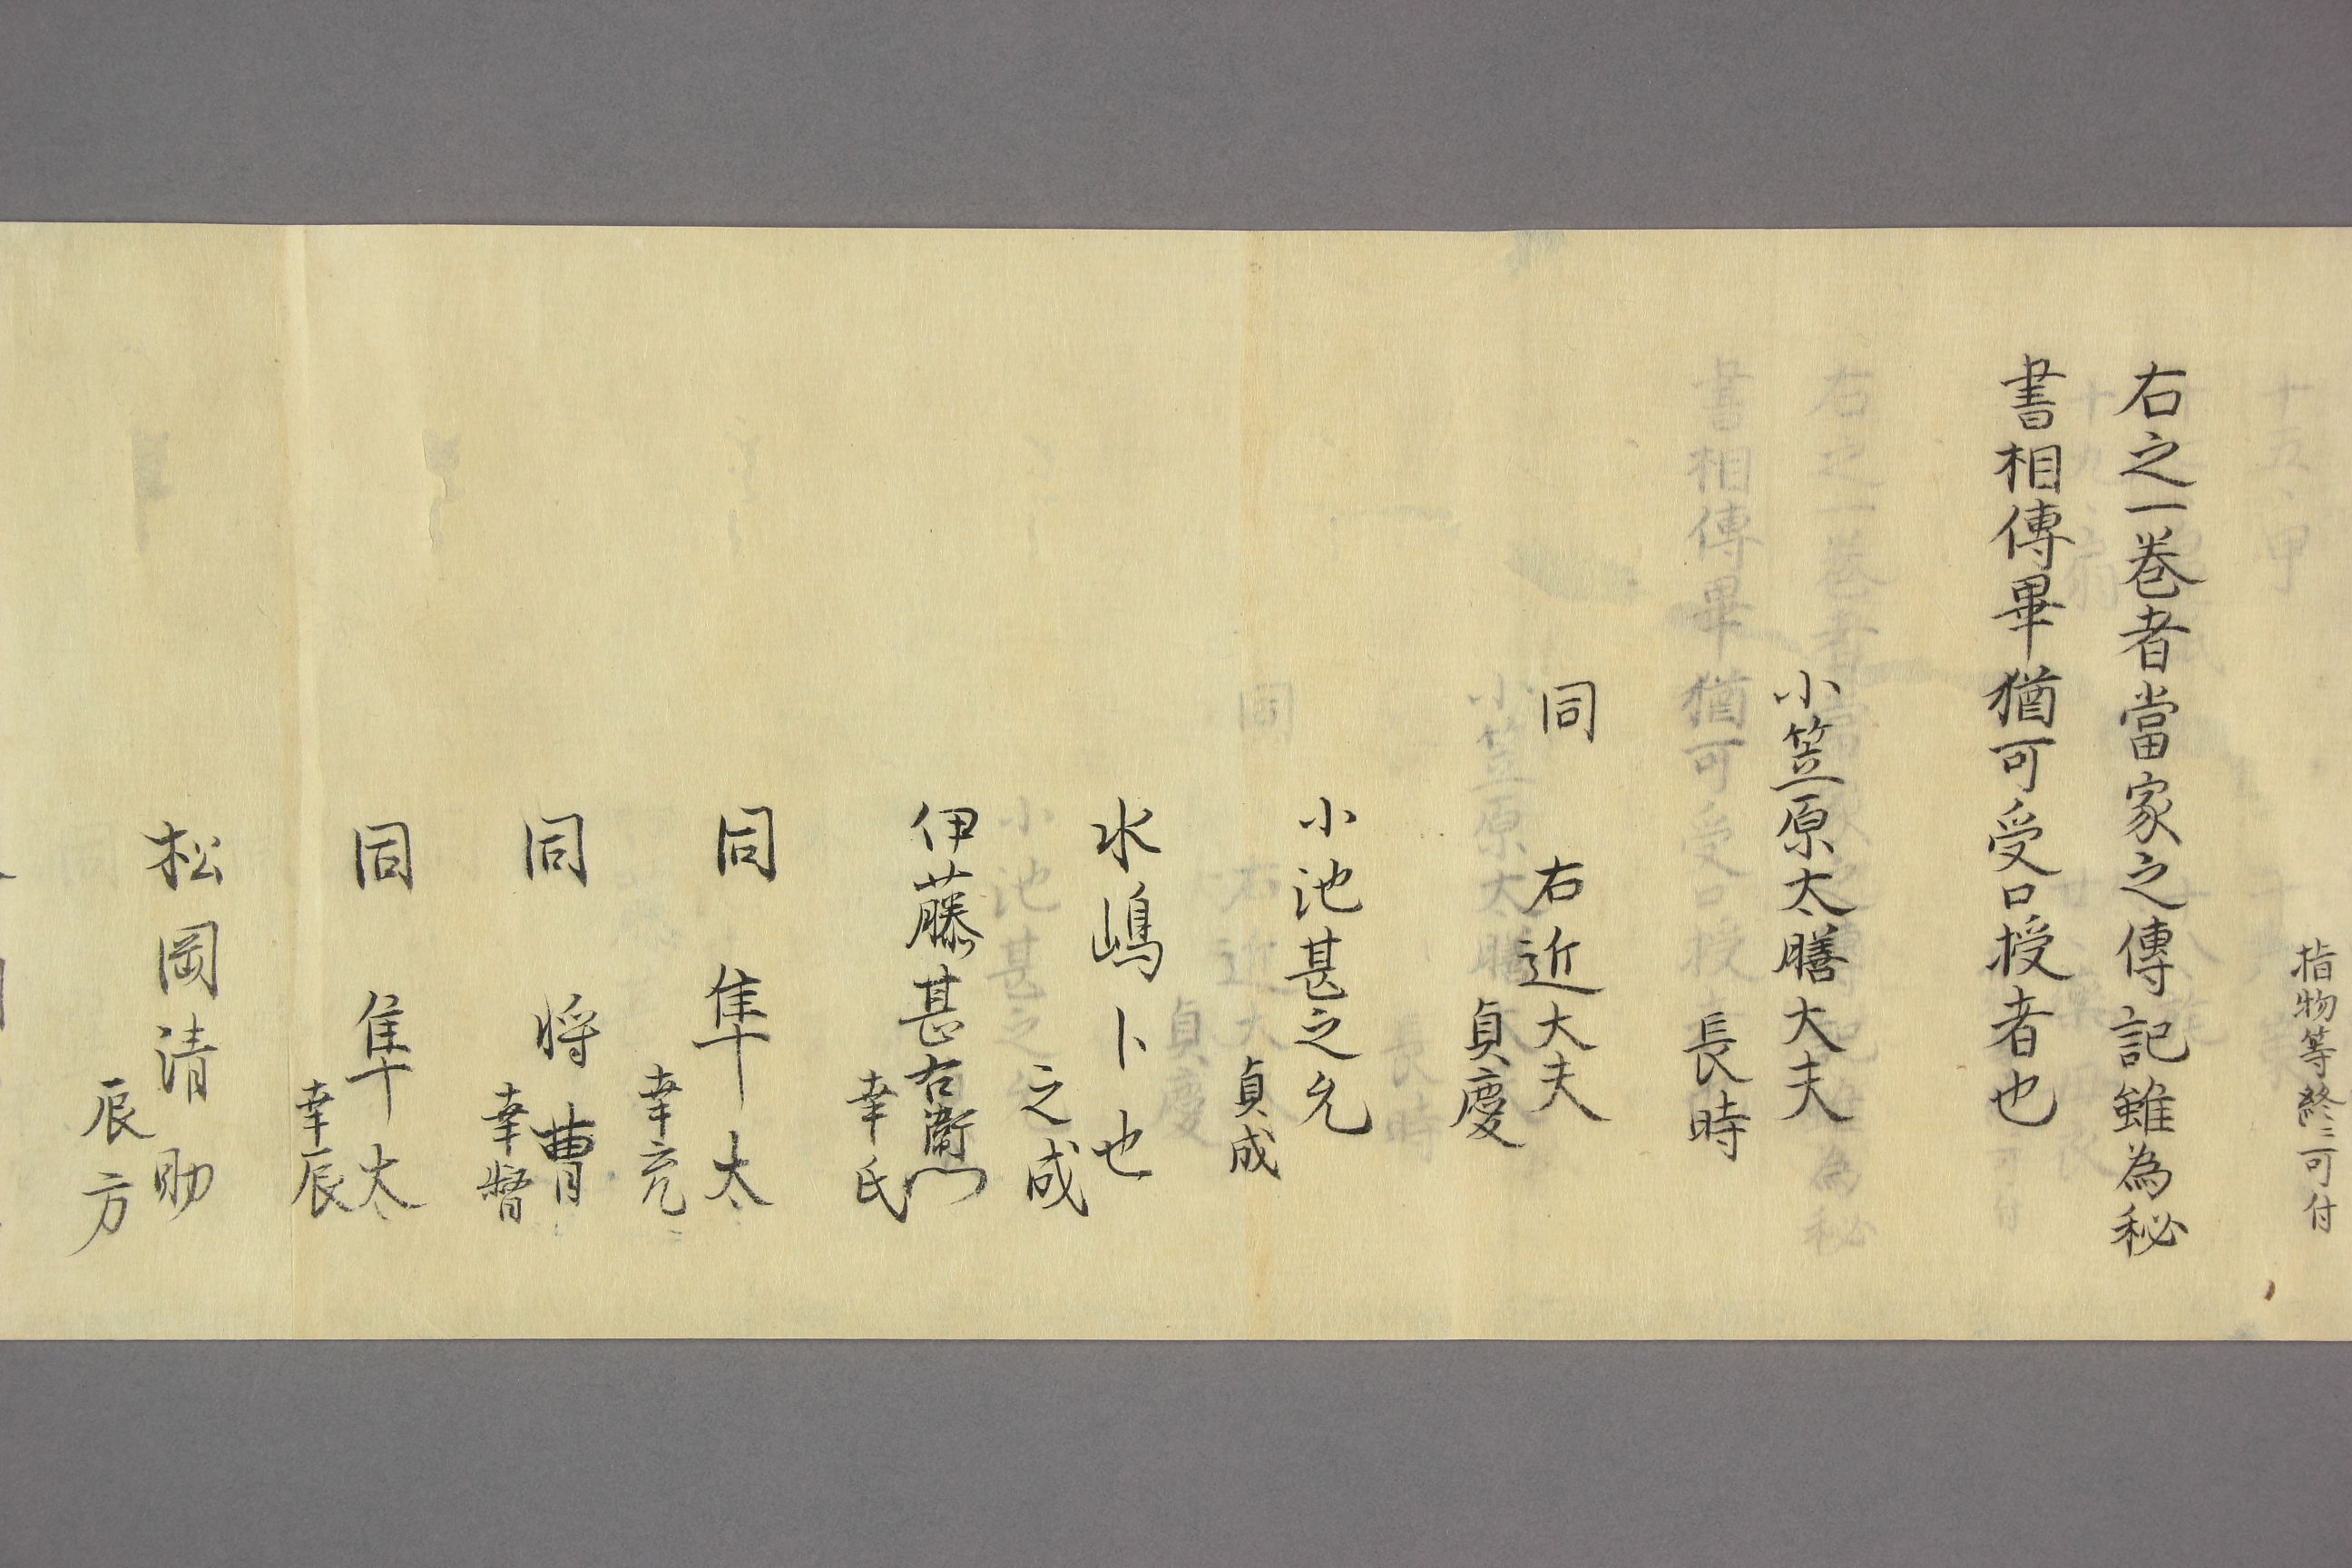 指物等終ニ可付
右之一巻者當家之傳記雖為秘
書相傳畢猶可受口授者也
小笠原大膳大夫
長時
同 右近大夫
貞慶
小池甚之允
貞成
水嶋卜也
之成
伊藤甚右衛門
幸氏
同 隼太
幸充
同 将曹
幸督
同 隼太
幸辰
松岡清助
辰方